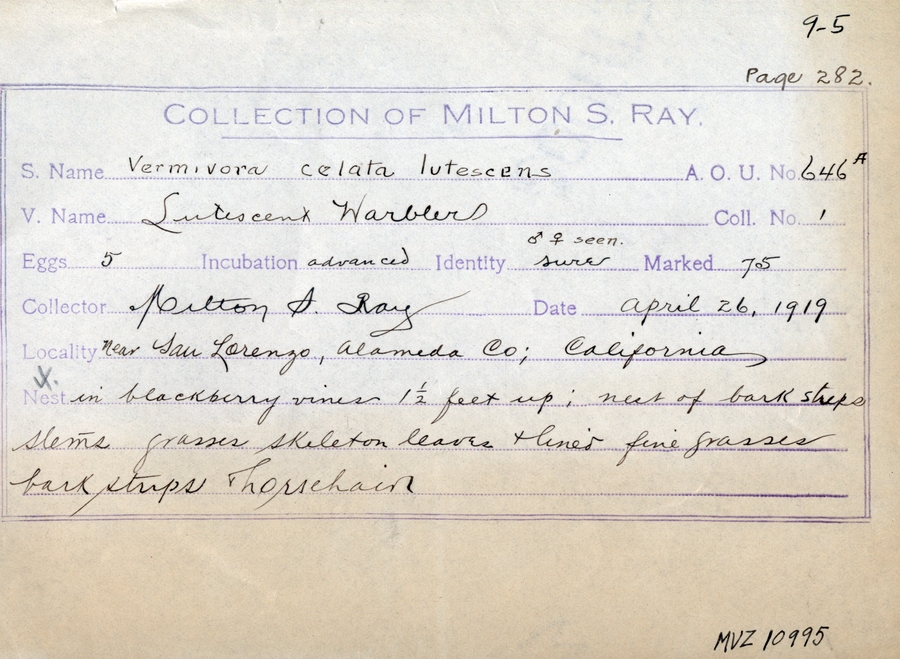 9-5
Page 282.
COLLECTION OF MILTON S. RAY.
S. Name Vermivora celata lutescens A. O. U. No. 646 A
V. Name Lutescent Warbler Coll. No. 1
♂ ♀ seen.
Eggs 5 Incubation advanced Identity sure Marked 75
Collector Milton S. Ray Date April 26, 1919
Locality Near San Lorenzo, Alameda Co; California
X.
Nest in blackberry vines 1½ feet up; nest of bark strips
stems grasses skeleton leaves + lined fine grasses
bark strips + horsehair
MVZ 10995